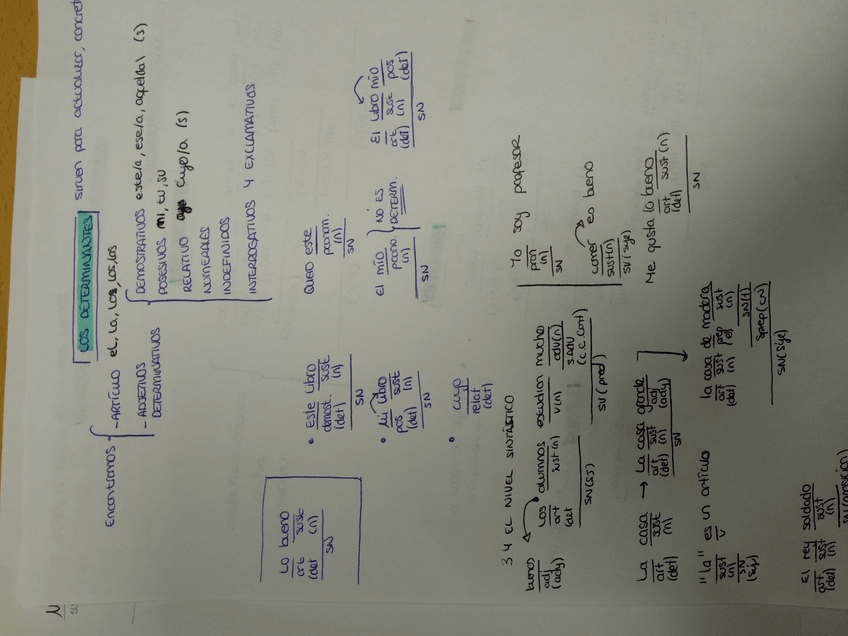 LOS DETERMINANTES sirven para actualizar, concret
Encontramos
- ARTÍCULO el, la, los, las
- ADJETIVOS
DETERMINATIVOS
DEMOSTRATIVOS este/a, ese/a, aquel/a (s)
POSESIVOS mi, tu, su
RELATIVO cuyo/a (s)
NUMERALES
INDEFINIDOS
INTERROGATIVOS Y EXCLAMATIVOS
Lo bueno
art sust
(det) (n)
SN
• Este libro
demost. sust
(det) (n)
SN
Quiero este
pronom.
(n)
SN
• Mi libro
pos sust
(det) (n)
SN
el mío
prono.
(n)
SN
NO ES
DETERM.
El libro mío
art sust pos
(det) (n) (det)
SN
• cuyo
relat
(det)
3 4 EL NIVEL SINTÁCTICO
buenos
adj
(ady)
Los alumnos estudian mucho
art sust (n) v (n) adv (n)
(det
SN (SJ)
S.ADV
(c.c. cant)
SV (pred)
Yo soy profesor
pron
(n)
SN
comer es bueno
sust (n)
SV (suje)
La casa → La casa grande
art sust art sust adj
(det) (n) (det) (n) (ady)
SN
Me gusta lo bueno
art sust (n)
(det)
SN
"la" es un artículo
sust v
(n)
SN
(suj)
la casa de madera
art sust prep sust
(det) (n) (e) (n)
SN (t)
Sprep (CN)
SN (Suje)
El rey soldado
art sust sust
(det) (n) (n)